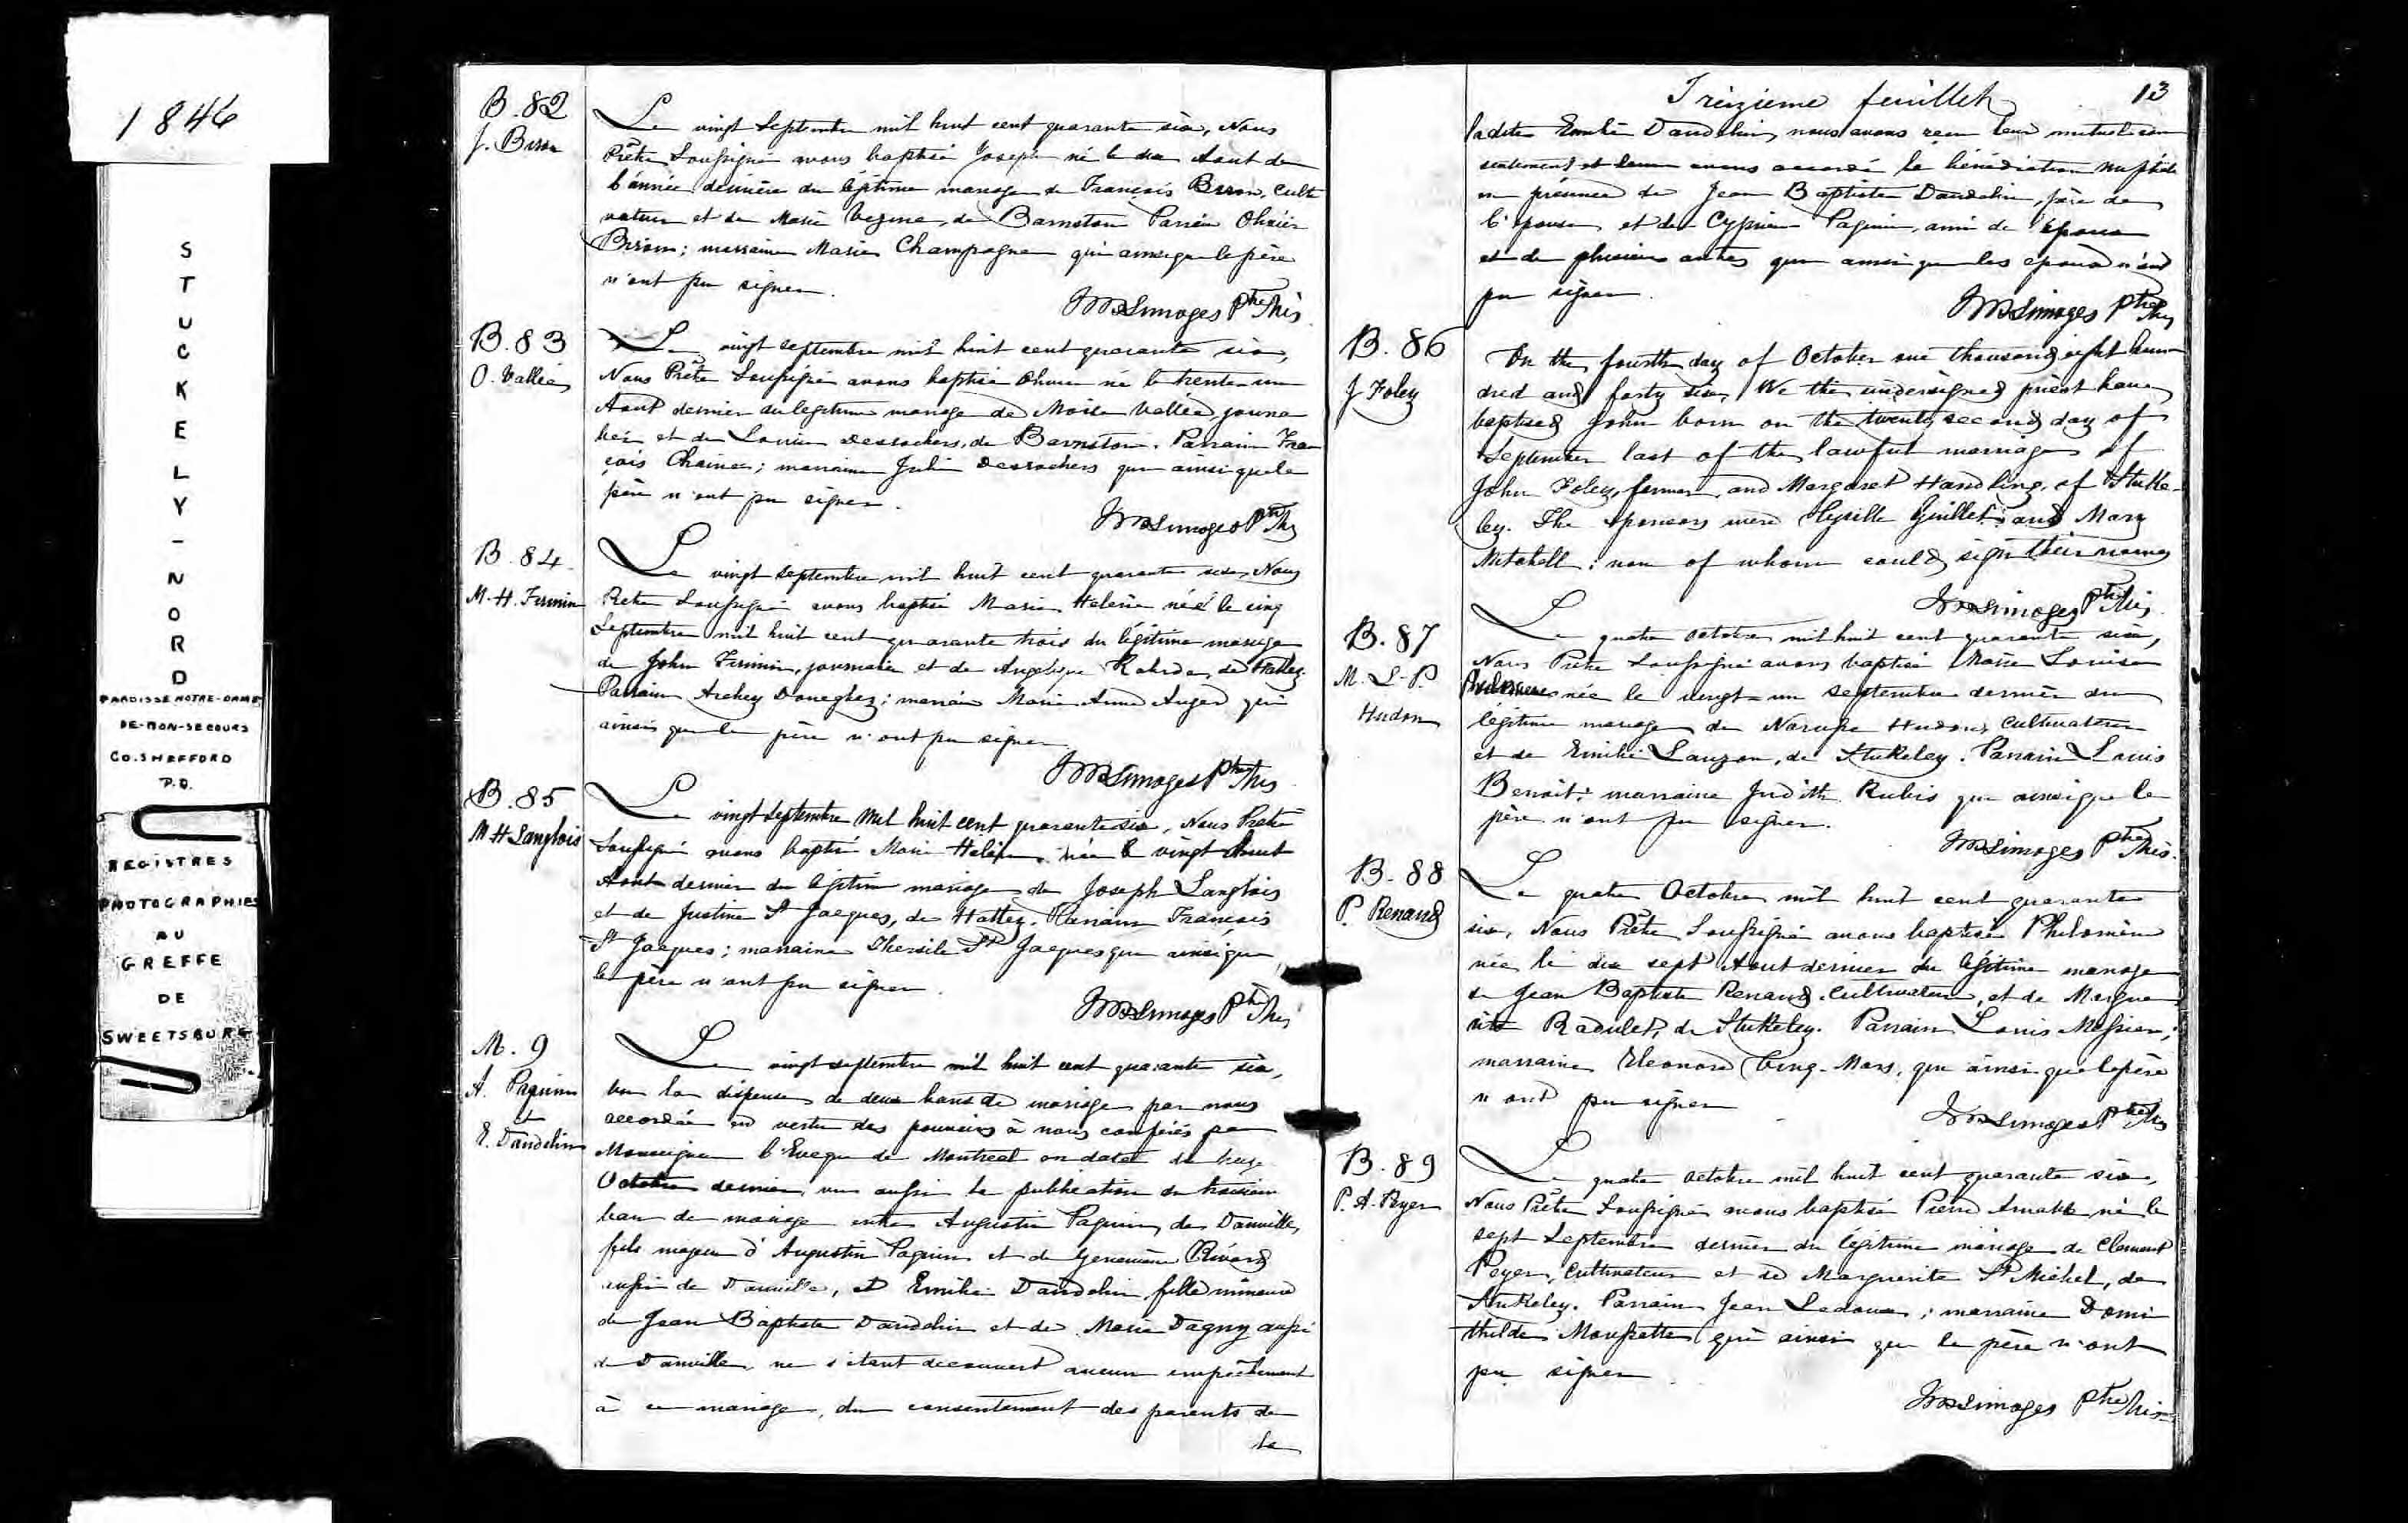 1846
S
T
U
C
K
E
L
Y
-
N
O
R
D
PAROISSE NOTRE-DAME
DE-BON-SECOURS
CO. SHEFFORD
P.Q.
REGISTRES
PHOTOGRAPHIES
AU
GREFFE
DE
SWEETSBURG
B. 82
J. Biron
Le vingt Septembre mil huit cent quarante six, Nous
Prêtre Soussigné avons baptisé Joseph né le dix Aout de
l'année dernière du légitime mariage de François Biron, Culti
vateur et de Marie Vezina, de Barnston Parrain Olivier
Biron; marraine Marie Champagne qui ainsi que le père
n'ont pu signer.
JBLimoges Ptre Mis
B. 83
O. Vallée
Le vingt septembre mil huit cent quarante six,
Nous Prêtre Soussigné avons baptisé né le trente un
Aout dernier du legitime mariage de Moïse Vallée journa
lier et de Louise Desrochers, de Barnston. Parrain Fran
çois Chainé; marraine Julie Desrochers qui ainsi que le
père n'ont pu signer.
JBLimoges Ptre Mis
B. 84
M. H. Firmin
Le vingt Septembre mil huit cent quarante six, Nous
Prêtre Soussigné avons baptisé Marie Helène née le cinq
Septembre mil huit cent quarante trois du légitime mariage
de John Firmin, journalier et de Angelique de Hatley.
Parrain Doneghey; marraine Marie Anne Auger qui
ainsi que le père n'ont pu signer
JBLimoges Ptre Mis
B. 85
M H Langlois
Le vingt Septembre Mil huit cent quarante six, Nous Prêtre
Soussigné avons baptisé Marie Helène née le vingt huit
Aout dernier du légitime mariage de Joseph Langlois
et de Justine St Jacques, de Hatley. Parrain François
St Jacques; marraine Thersile St Jacques qui ainsi que
le père n'ont pu signer.
JBLimoges Ptre Mis
M. 9
A. Paquin
et
E. Dandelin
Le vingt septembre mil huit cent quarante six,
vu la dispense de deux bans de mariage par nous
accordée en vertu des pouvoirs à nous conférés par
Monseigneur l'Eveque de Montreal en date du treize
Octobre dernier, vu aussi la publication du troisième
ban de mariage entre Augustin Paquin, de Danville,
fils majeur d'Augustin Paquin et de Genevieve Rivard
aussi de Danville, et Emilie Dandelin fille mineure
de Jean Baptiste Dandelin et de Marie Dagny aussi
de Danville, ne s'étant découvert aucun empêchement
à ce mariage, du consentement des parents de
la
Treizieme feuillet 13
ladite Emilie Dandelin, nous avons reçu leur mutuel con
sentement et leur avons accordé la bénédiction nuptiale
en présence de Jean Baptiste Dandelin, père de
l'épouse et de Cyprien Paquin, ami de l'époux
et de plusieurs autres qui ainsi que les epoux n'ont
pu signer.
JBLimoges Ptre Mis
B. 86
J Foley
On the fourth day of October one thousand eight hun
dred and forty six, We the undersigned priest have
baptised John born on the twenty second day of
September last of the lawful marriage of
John Foley, farmer, and Margaret Handling, of Stuke
ley. The sponsors were Cyrille Guillet and Mary
Mitchell; non of whom could sign their names
JBLimoges Ptre Mis
B. 87
M. L. P.
Hudon
Le quatre octobre mil huit cent quarante six,
Nous Prêtre Soussigné avons baptisé Marie Louise
Philomène née le vingt-un septembre dernier du
légitime mariage de Narcisse Hudon, cultivateur
et de Emilie Lauzon, de Stukeley. Parrain Louis
Benoit; marraine Judith Rubis qui ainsi que le
père n'ont pu signer.
JBLimoges Ptre Mis
B. 88
P. Renaud
Le quatre Octobre mil huit cent quarante
six, Nous Prêtre Soussigné avons baptisé Philomène
née le dix sept Aout dernier du légitime mariage
de Jean Baptiste Renaud, Cultivateur, et de Margue
rite Radulet, de Stukeley. Parrain Louis Messier;
marraine Eleonore Cinq-Mars, qui ainsi que le père
n'ont pu signer
JBLimoges Ptre Mis
B. 89
P. A. Peyer
Le quatre octobre mil huit cent quarante six,
Nous Prêtre Soussigné avons baptisé Pierre Amable né le
sept Septembre dernier du légitime mariage de Clement
Peyer, Cultivateur et de Marguerite St Michel, de
Stukeley. Parrain Jean Ledoux; marraine Domi
thilde Moussette qui ainsi que le père n'ont
pu signer
JBLimoges Ptre Mis